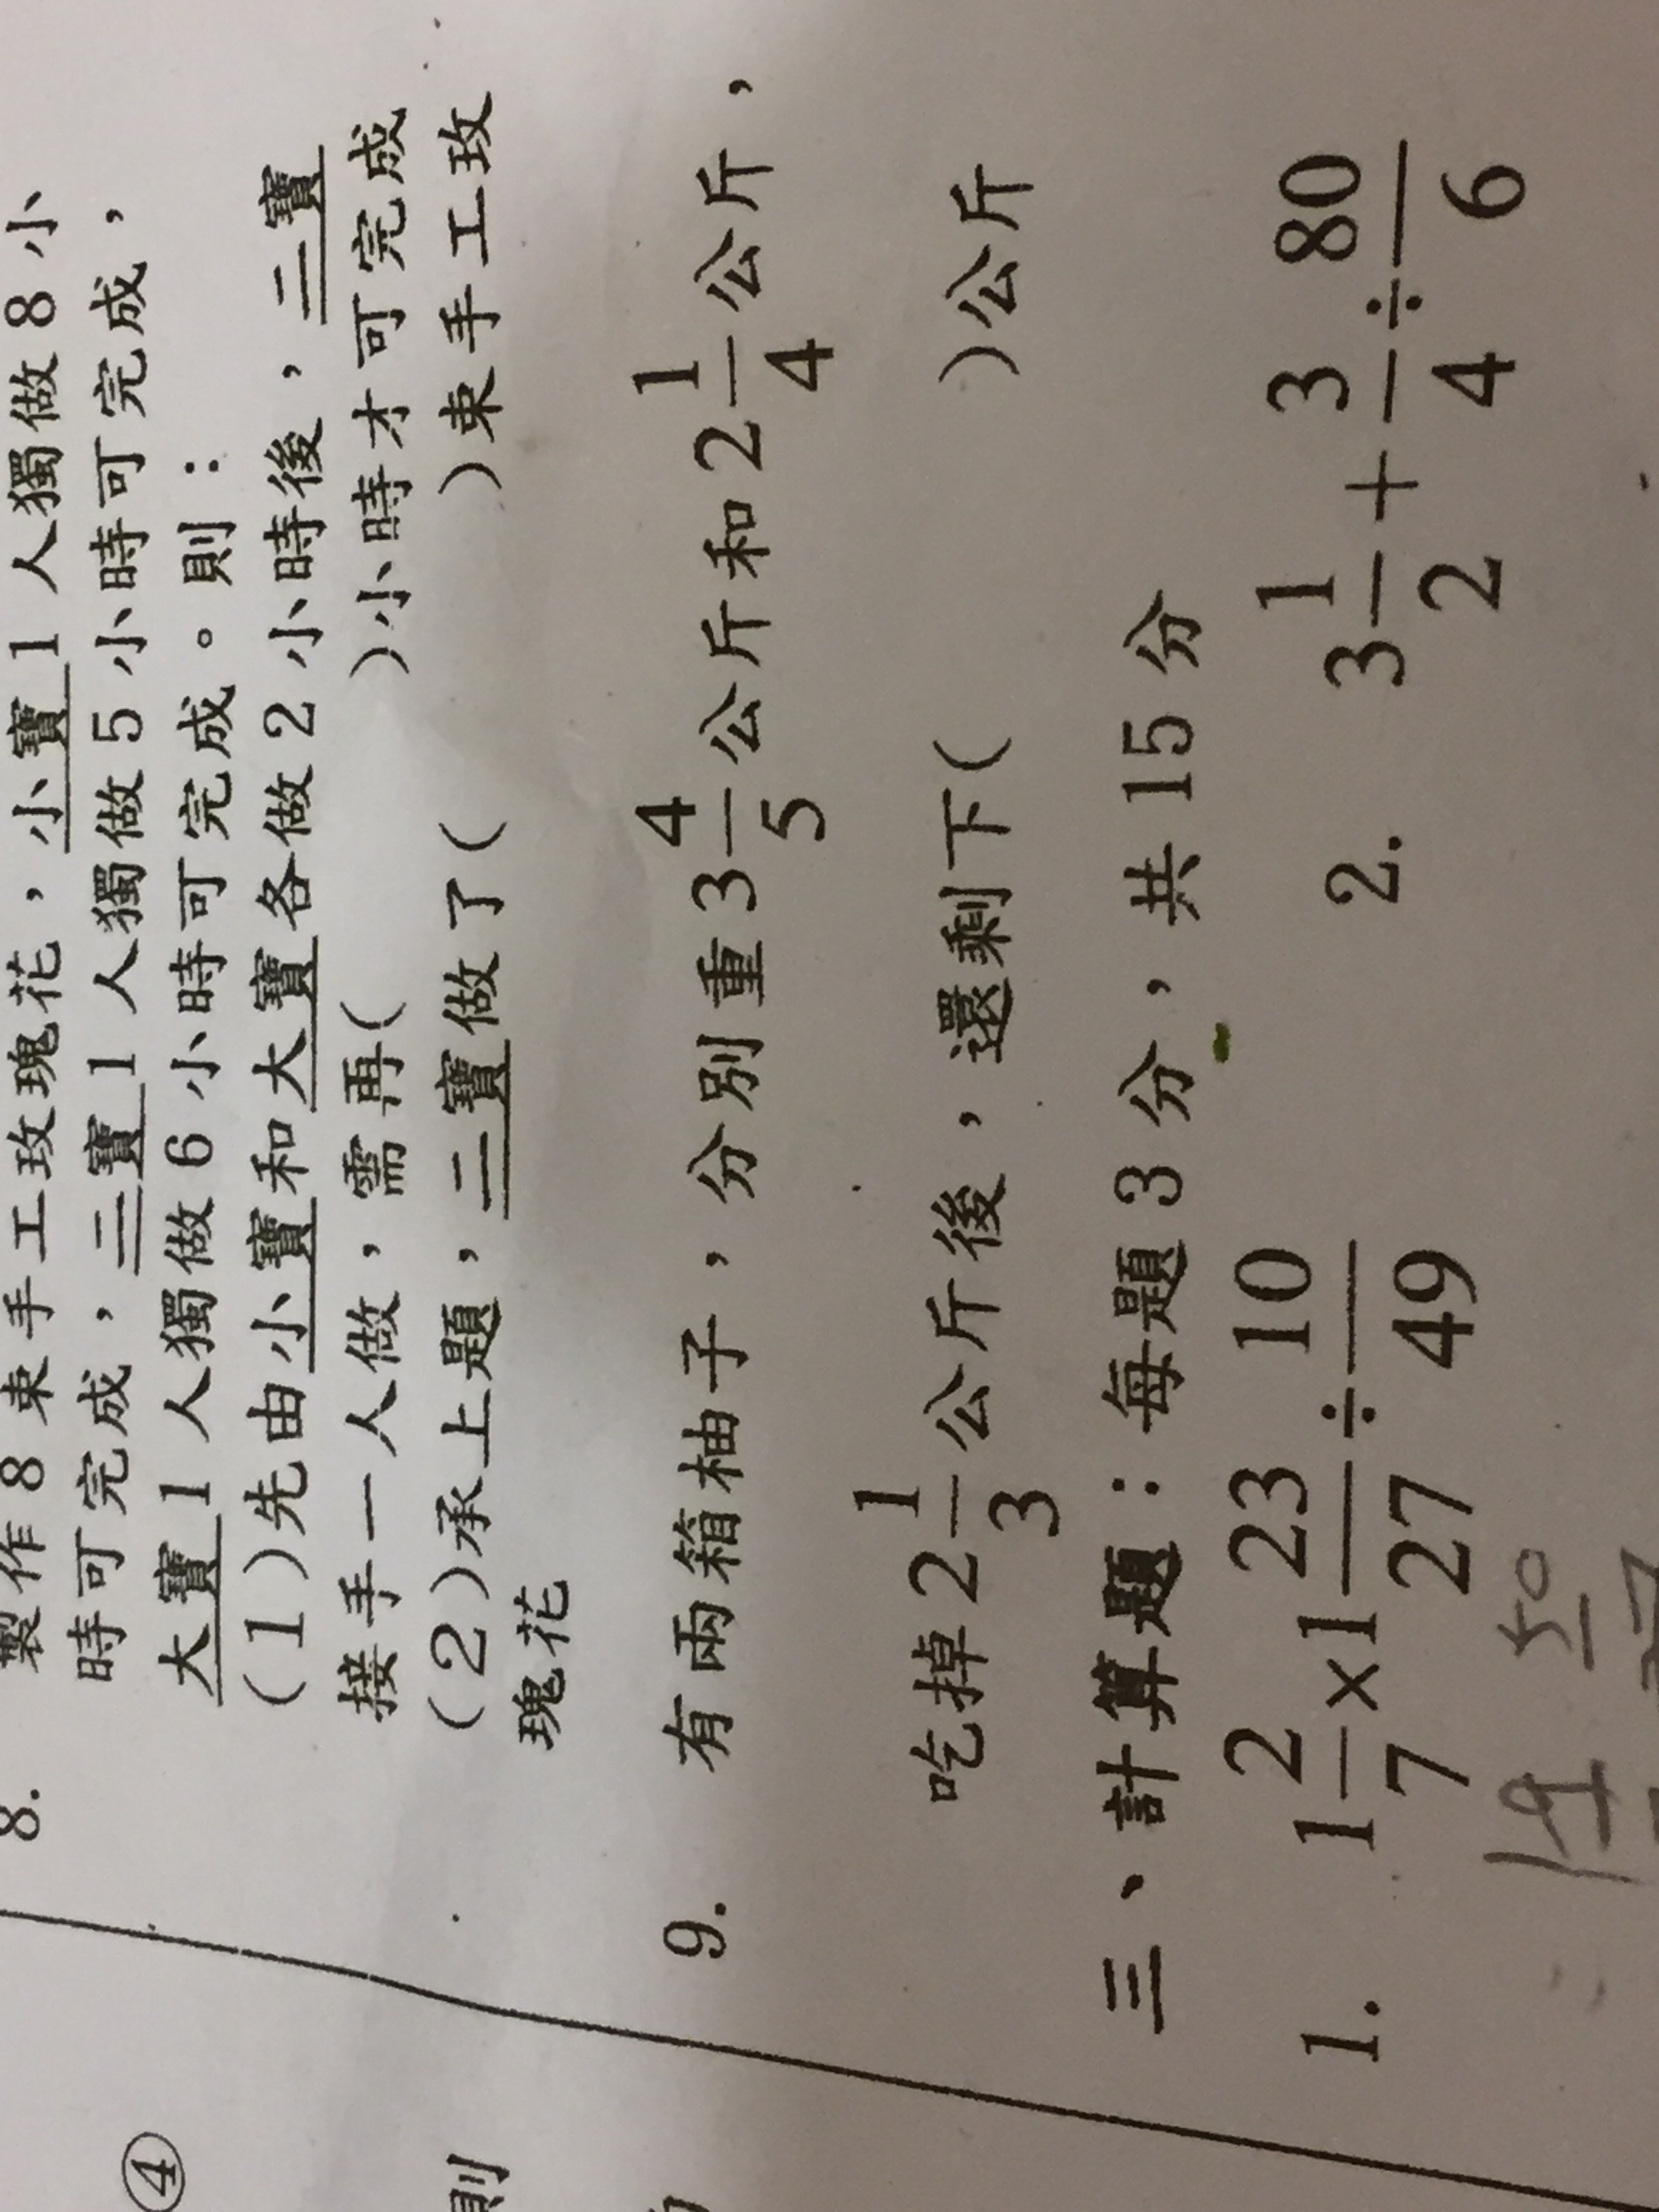 8. 製作8束手工玫瑰花，小寶1人獨做8小
時可完成，二寶1人獨做5小時可完成，
大寶1人獨做6小時可完成。則：
(1)先由小寶和大寶各做2小時後，二寶
接手一人做，需再(　　)小時才可完成
(2)承上題，二寶做了(　　)束手工玫
瑰花
9. 有兩箱柚子，分別重3 4/5公斤和2 1/4公斤，
吃掉2 1/3公斤後，還剩下(　　)公斤
三、計算題：每題3分，共15分
1. 1 2/7×1 23/27÷10/49　2. 3 1/2+3/4÷80/6
④
則